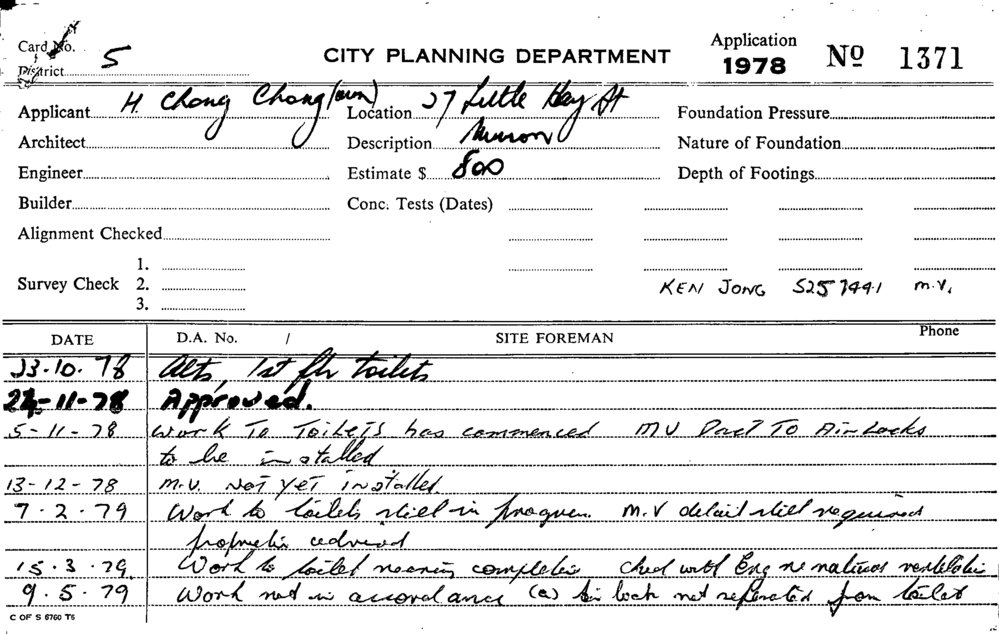 Card No. 5
District
CITY PLANNING DEPARTMENT
Application
1978 Nº 1371
Applicant H. Chong Chong (own) Location 27 Little Hay St Foundation Pressure
Architect Description Nature of Foundation
Engineer Estimate $ 800 Depth of Footings
Builder Conc. Tests (Dates)
Alignment Checked
1.
Survey Check 2.
3.
KEN JONG S257441 M.V.
DATE D.A. No. / SITE FOREMAN Phone
23.10.78 Alts, 1st flr toilets
24-11-78 Approved.
5-11-78 Work To Toilets has commenced MV Duct To Air Locks
to be installed
13-12-78 M.V. NOT YET installed
7.2.79 Work to toilets still in progress. M.V detail still required
proprietor advised
15.3.79 Work to toilet nearing completion check with Eng re natural ventilation
9.5.79 Work not in accordance (a) Air lock not separated from toilet
C OF S 6760 T6